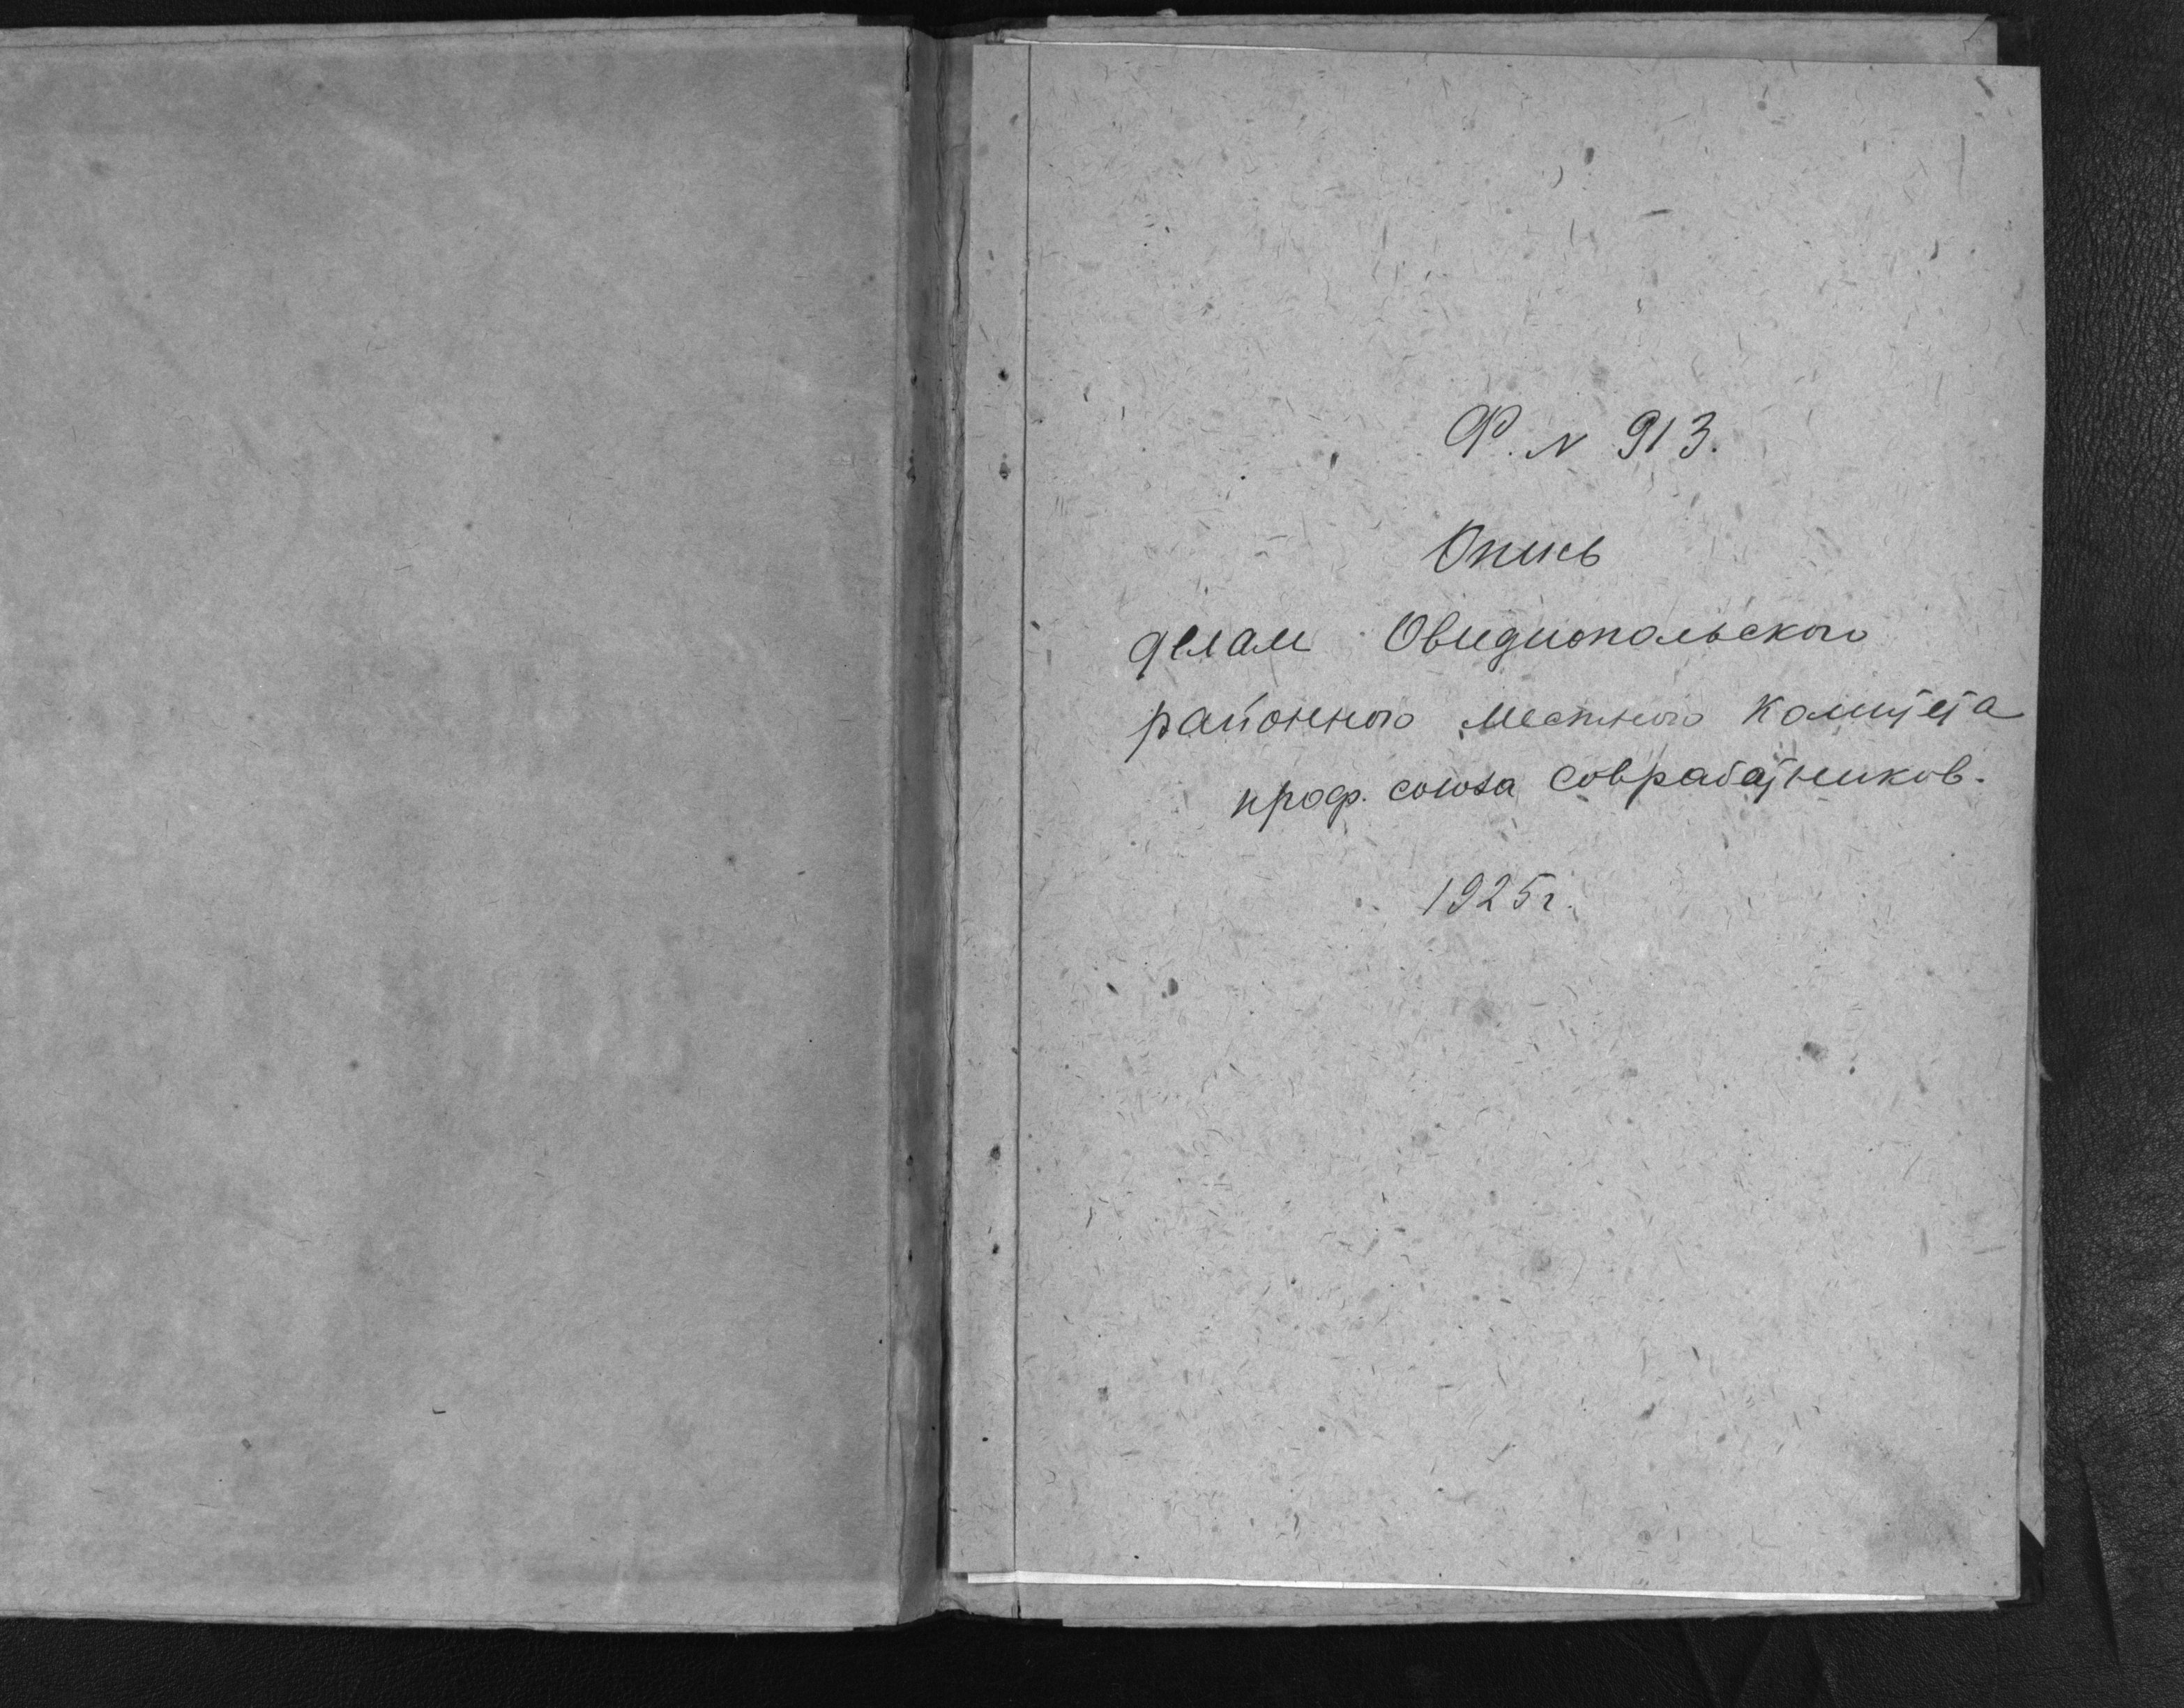 Ф. N 913.
Опись
делам Овидиопольского
районного местного комитета
проф. союза совработников.
1925 г.